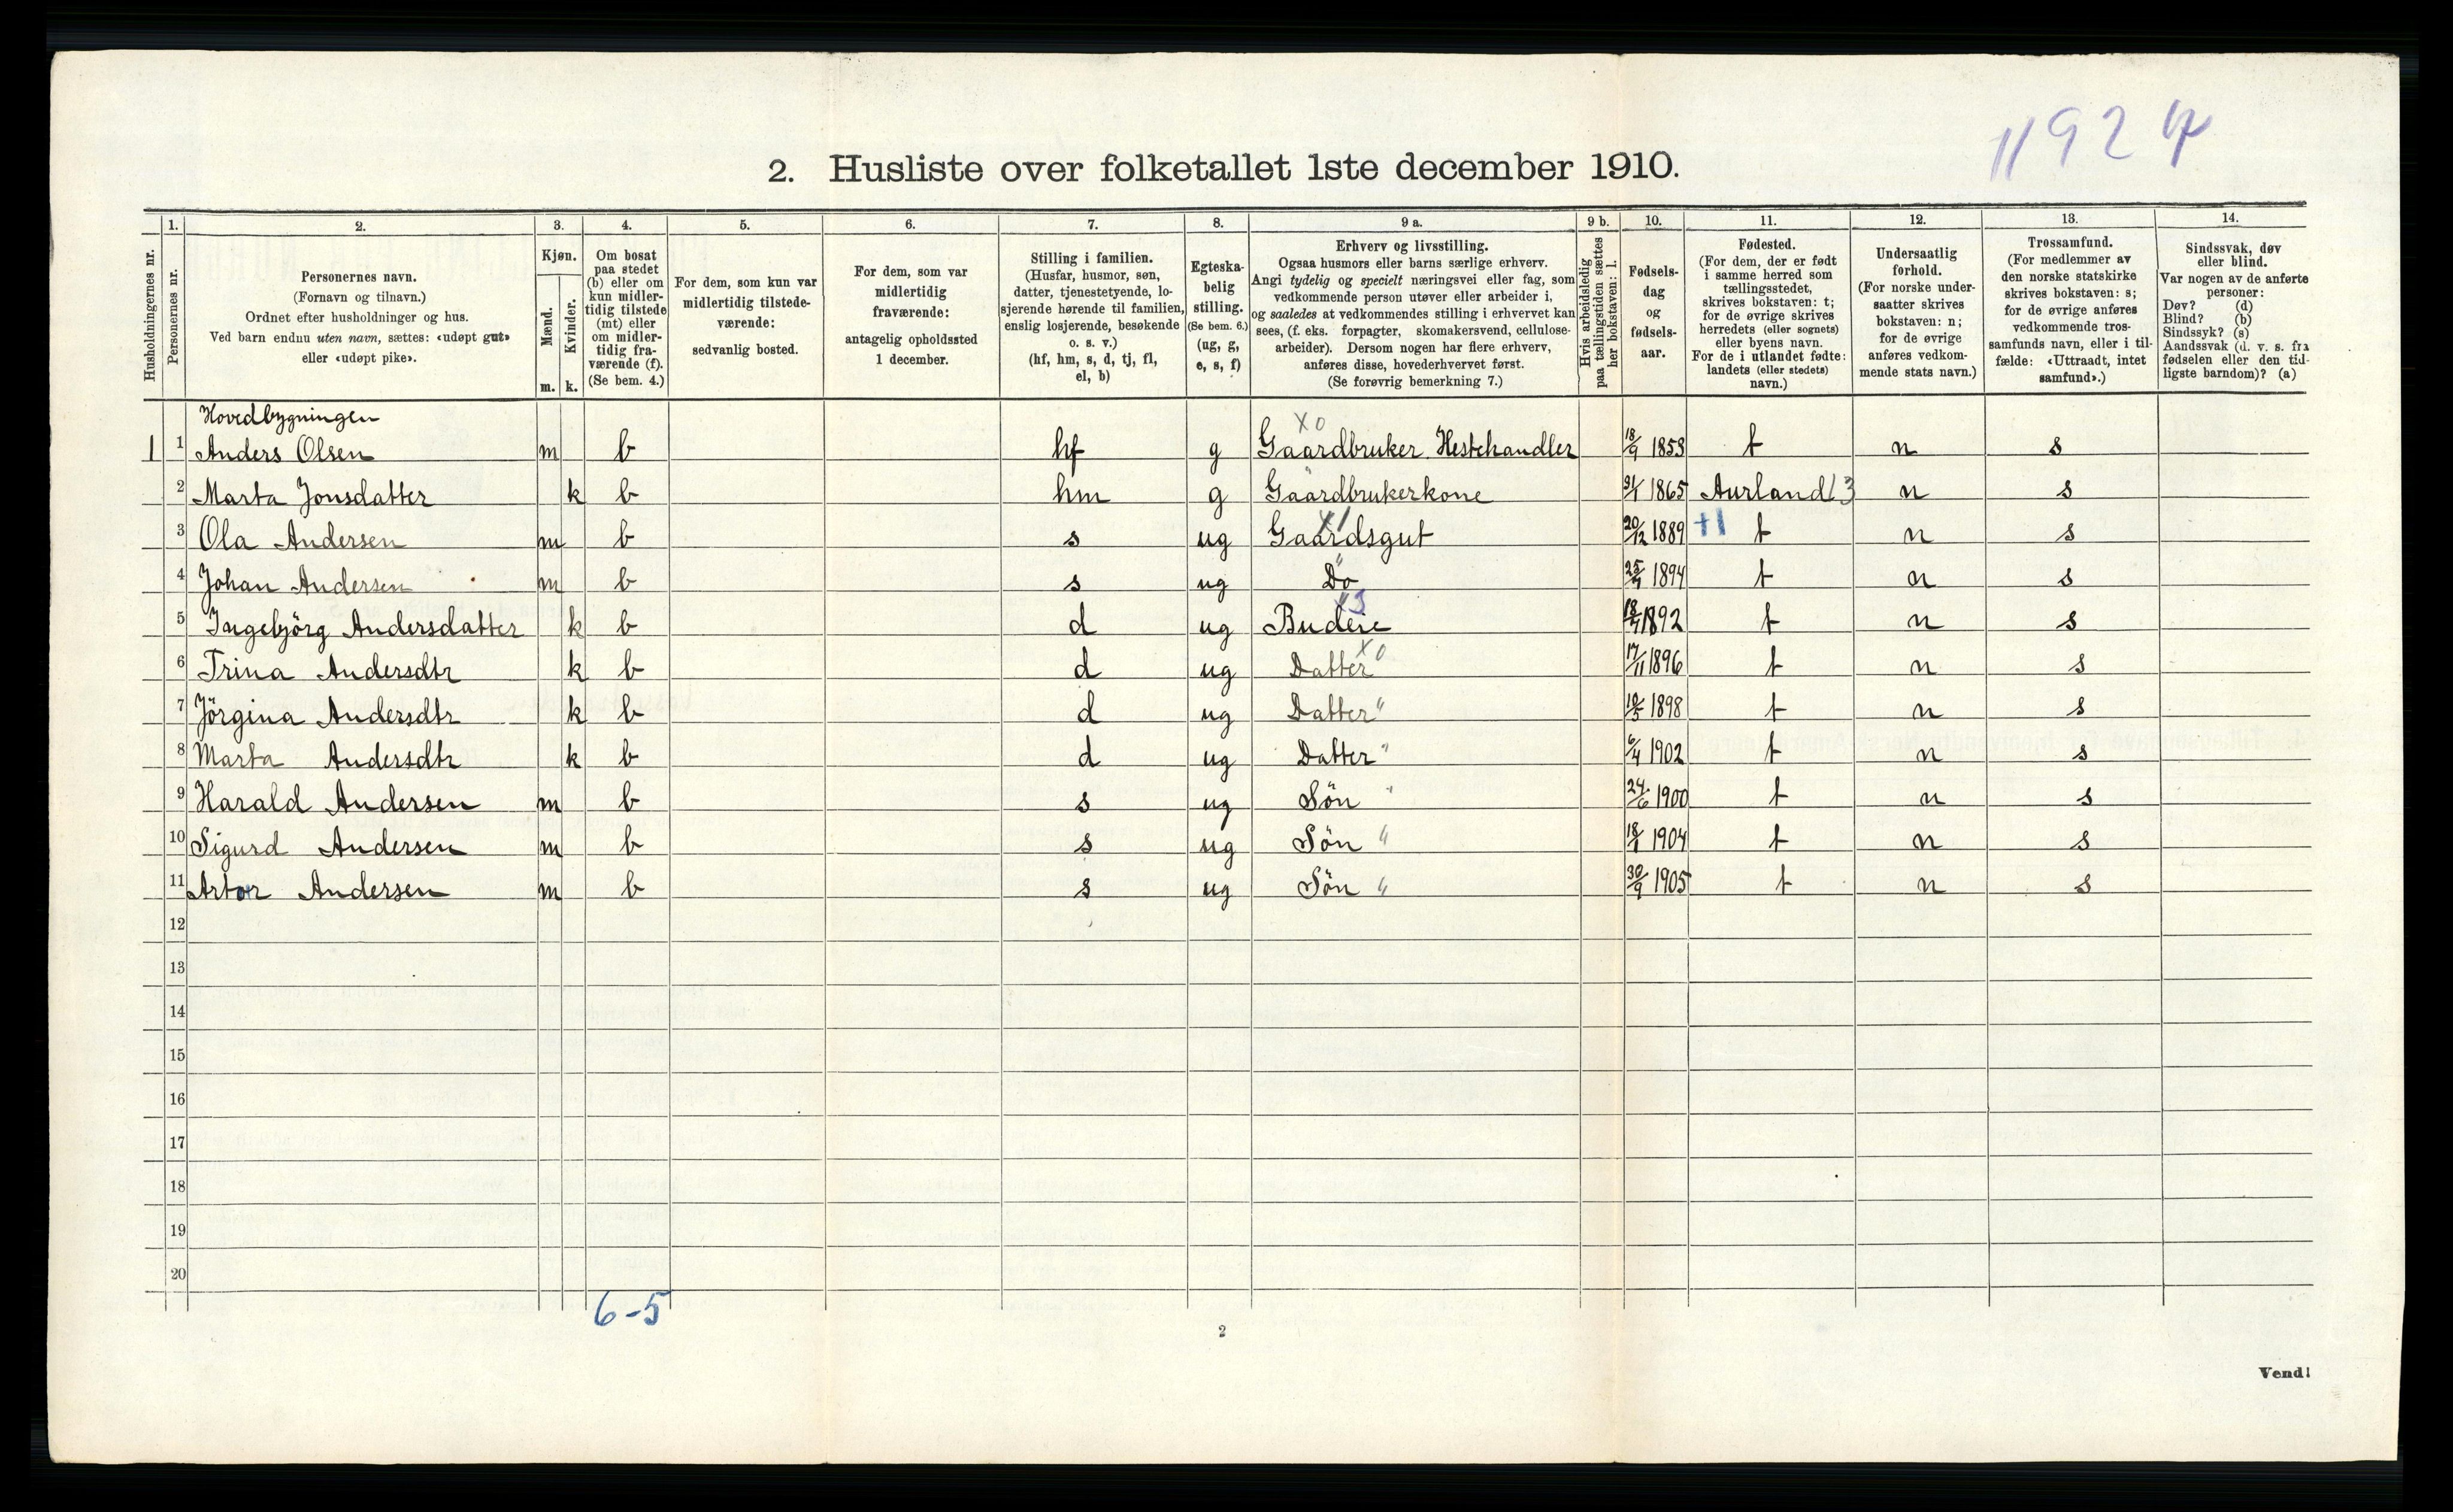 11924
2. Husliste over folketallet 1ste december 1910.
Husholdningernes nr.
1.
Personernes nr.
2.
Personernes navn.
(Fornavn og tilnavn.)
Ordnet efter husholdninger og hus.
Ved barn endnu uten navn, sættes: «udøpt gut»
eller «udøpt pike».
3.
Kjøn.
Mænd.
Kvinder.
m. k.
4.
Om bosat
paa stedet
(b) eller om
kun midler-
tidig tilstede
(mt) eller
om midler-
tidig fra-
værende (f).
(Se bem. 4.)
5.
For dem, som kun var
midlertidig tilstede-
værende:
sedvanlig bosted.
6.
For dem, som var
midlertidig
fraværende:
antagelig opholdssted
1 december.
7.
Stilling i familien.
(Husfar, husmor, søn,
datter, tjenestetyende, lo-
sjerende hørende til familien,
enslig losjerende, besøkende
o. s. v.)
(hf, hm, s, d, tj, fl,
el, b)
8.
Egteska-
belig
stilling.
(Se bem. 6.)
(ug, g,
e, s, f)
9 a.
Erhverv og livsstilling.
Ogsaa husmors eller barns særlige erhverv.
Angi tydelig og specielt næringsvei eller fag, som
vedkommende person utøver eller arbeider i,
og saaledes at vedkommendes stilling i erhvervet kan
sees, (f. eks. forpagter, skomakersvend, cellulose-
arbeider). Dersom nogen har flere erhverv,
anføres disse, hovederhvervet først.
(Se forøvrig bemerkning 7.)
9 b.
Hvis arbeidsledig
paa tællingstiden sættes
her bokstaven: l.
10.
Fødsels-
dag
og
fødsels-
aar.
11.
Fødested.
(For dem, der er født
i samme herred som
tællingsstedet,
skrives bokstaven: t;
for de øvrige skrives
herredets (eller sognets)
eller byens navn.
For de i utlandet fødte:
landets (eller stedets)
navn.)
12.
Undersaatlig
forhold.
(For norske under-
saatter skrives
bokstaven: n;
for de øvrige
anføres vedkom-
mende stats navn.)
13.
Trossamfund.
(For medlemmer av
den norske statskirke
skrives bokstaven: s;
for de øvrige anføres
vedkommende tros-
samfunds navn, eller i til-
fælde: «Uttraadt, intet
samfund».)
14.
Sindssvak, døv
eller blind.
Var nogen av de anførte
personer:
Døv? (d)
Blind? (b)
Sindssyk? (s)
Aandssvak (d. v. s. fra
fødselen eller den tid-
ligste barndom)? (a)
Hovedbygningen X0
1 1 Anders Olsen m b hf g Gaardbruker. Hestehandler 18/9 1853 t n s
2 Marta Jonsdatter k b hm g Gaardbrukerkone 31/1 1865 Aurland 13 n s
3 Ola Andersen m b s ug X1 Gaardsgut 20/12 1889 +1 t n s
4 Johan Andersen m b s ug Do " 1894 t n s
5 Ingebjörg Andersdatter k b d ug X3 Budeie 1892 t n s
6 Trina Andersdtr k b d ug Datter X0 17/11 1896 t n s
7 Jörgina Andersdtr k b d ug Datter " 1898 t n s
8 Marta Andersdtr k b d ug Datter " 6/4 1902 t n s
9 Harald Andersen m b s ug Søn " 24/6 1900 t n s
10 Sigurd Andersen m b s ug Søn " 1904 t n s
11 Artor Andersen m b s ug Søn " 30/9 1905 t n s
12
13
14
15
16
17
18
19
20
6-5
2
Vend!